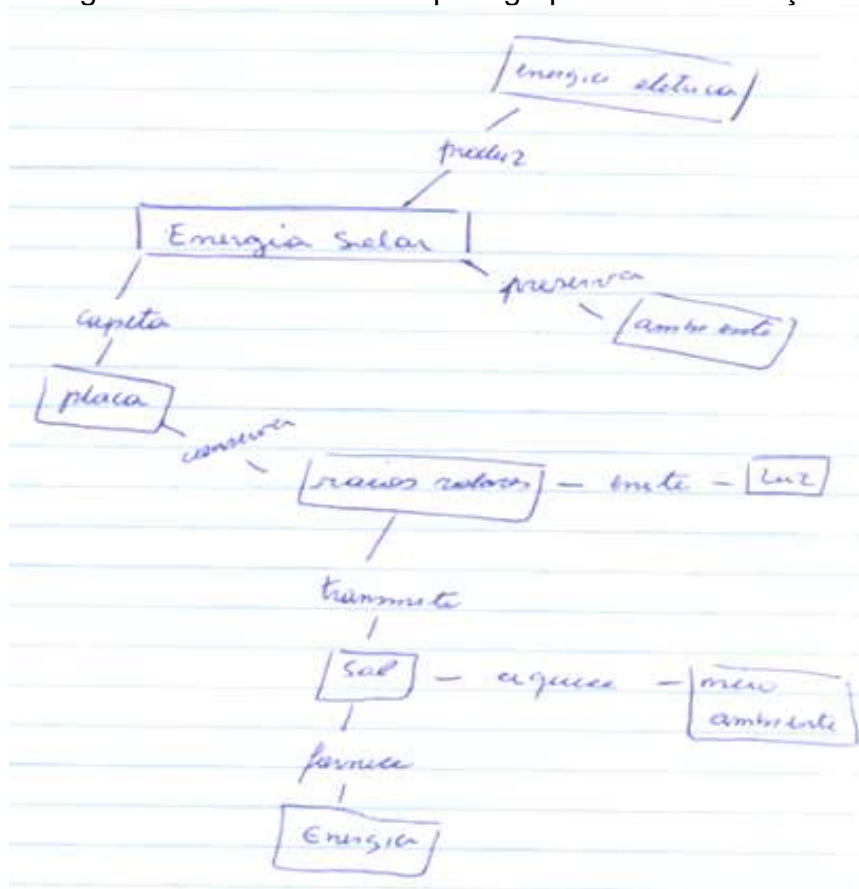 energia eletrica
produz
Energia Solar
preserva
ambiente
capeta
placa
conserva
raios solares - emite - Luz
transmite
Sol - aquece - meio
ambiente
fornece
Energia